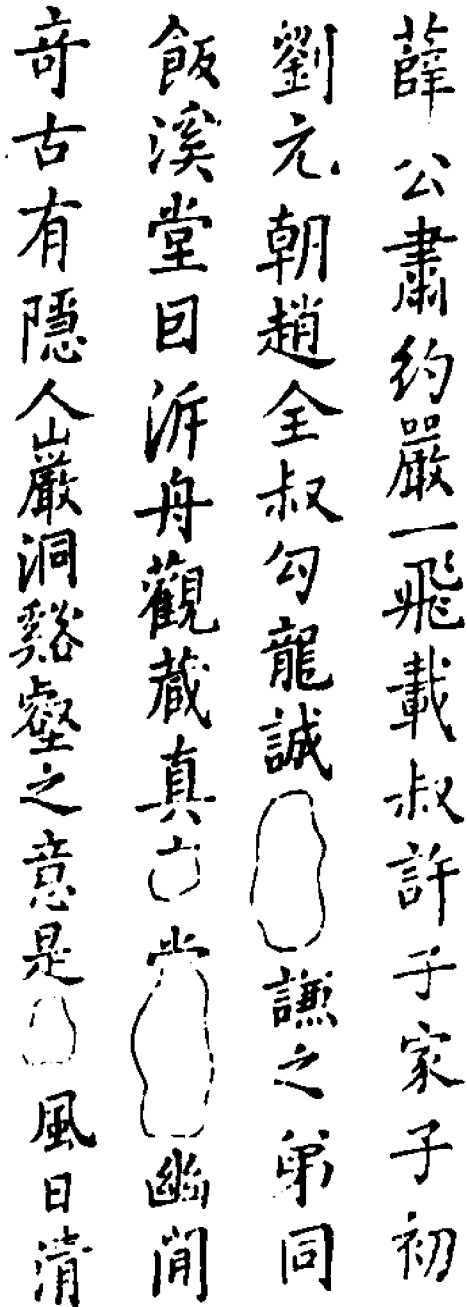 薛公肅約嚴一飛載叔許子家子初
劉元朝趙全叔勾龍誠謙之弟同
飯溪堂回泝舟觀蔵真幽閒
竒古有隱人山巖洞谿壑之意是風日清